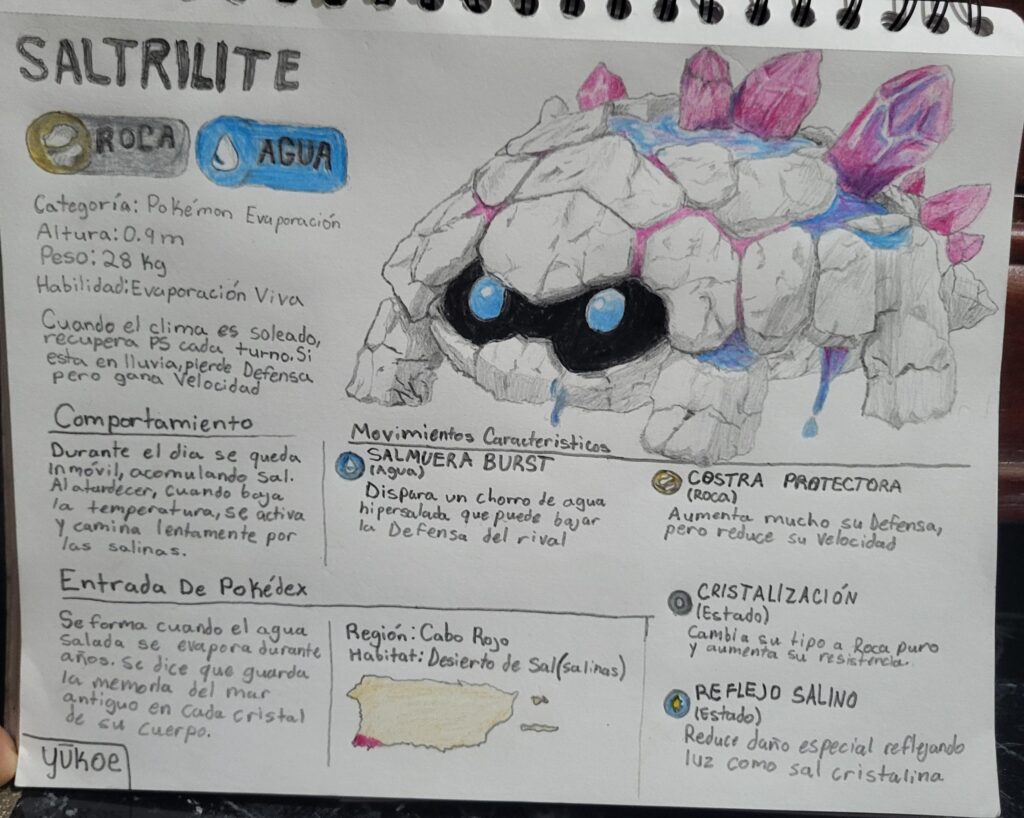 SALTRILITE
ROCA
AGUA
Categoría: Pokémon Evaporación
Altura: 0.9 m
Peso: 28 kg
Habilidad: Evaporación Viva
Cuando el clima es soleado,
recupera PS cada turno. Si
esta en lluvia, pierde Defensa
pero gana Velocidad
Comportamiento
Durante el dia se queda
inmóvil, acomulando sal.
Al atardecer, cuando baja
la temperatura, se activa
y camina lentamente por
las salinas.
Movimientos Caracteristicos
SALMUERA BURST
(Agua)
Dispara un chorro de agua
hipersalada que puede bajar
la Defensa del rival
COSTRA PROTECTORA
(ROCA)
Aumenta mucho su Defensa,
pero reduce su Velocidad
CRISTALIZACIÓN
(Estado)
Cambia su tipo a Roca puro
y aumenta su resistencia.
REFLEJO SALINO
(Estado)
Reduce daño especial reflejando
luz como sal cristalina
Entrada De Pokédex
Se forma cuando el agua
salada se evapora durante
años. Se dice que guarda
la memoria del mar
antiguo en cada cristal
de su cuerpo.
Región: Cabo Rojo
Habitat: Desierto de Sal (salinas)
YŪKOE